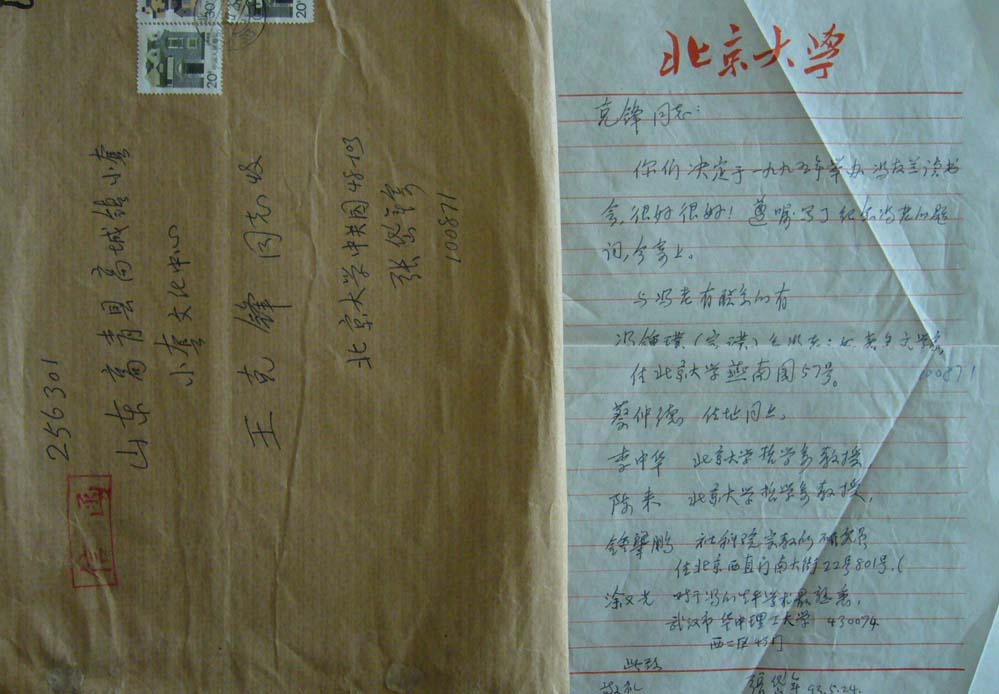 256301
山东高青县高城镇小套
小套文化中心
王克锋 同志收
北京大学中关园48-103
张岱年寄
100871
信函
20分
北京大学
克锋同志：
你们决定于一九九五年举办冯友兰读书
会，很好很好！遵嘱写了纪念冯老的题
词，今寄上。
与冯老有联系的有
冯钟璞（宗璞）
住北京大学燕南园57号。 100871
蔡仲德 住址同上。
李中华 北京大学哲学系教授
陈来 北京大学哲学系教授，
钟肇鹏 社科院宗教所研究员
住北京西直门南大街22号801号。
涂又光 对于冯的生平学术最熟悉，
武汉市华中理工大学 430074
西二区43门
此致
敬礼 张岱年 93.5.24.